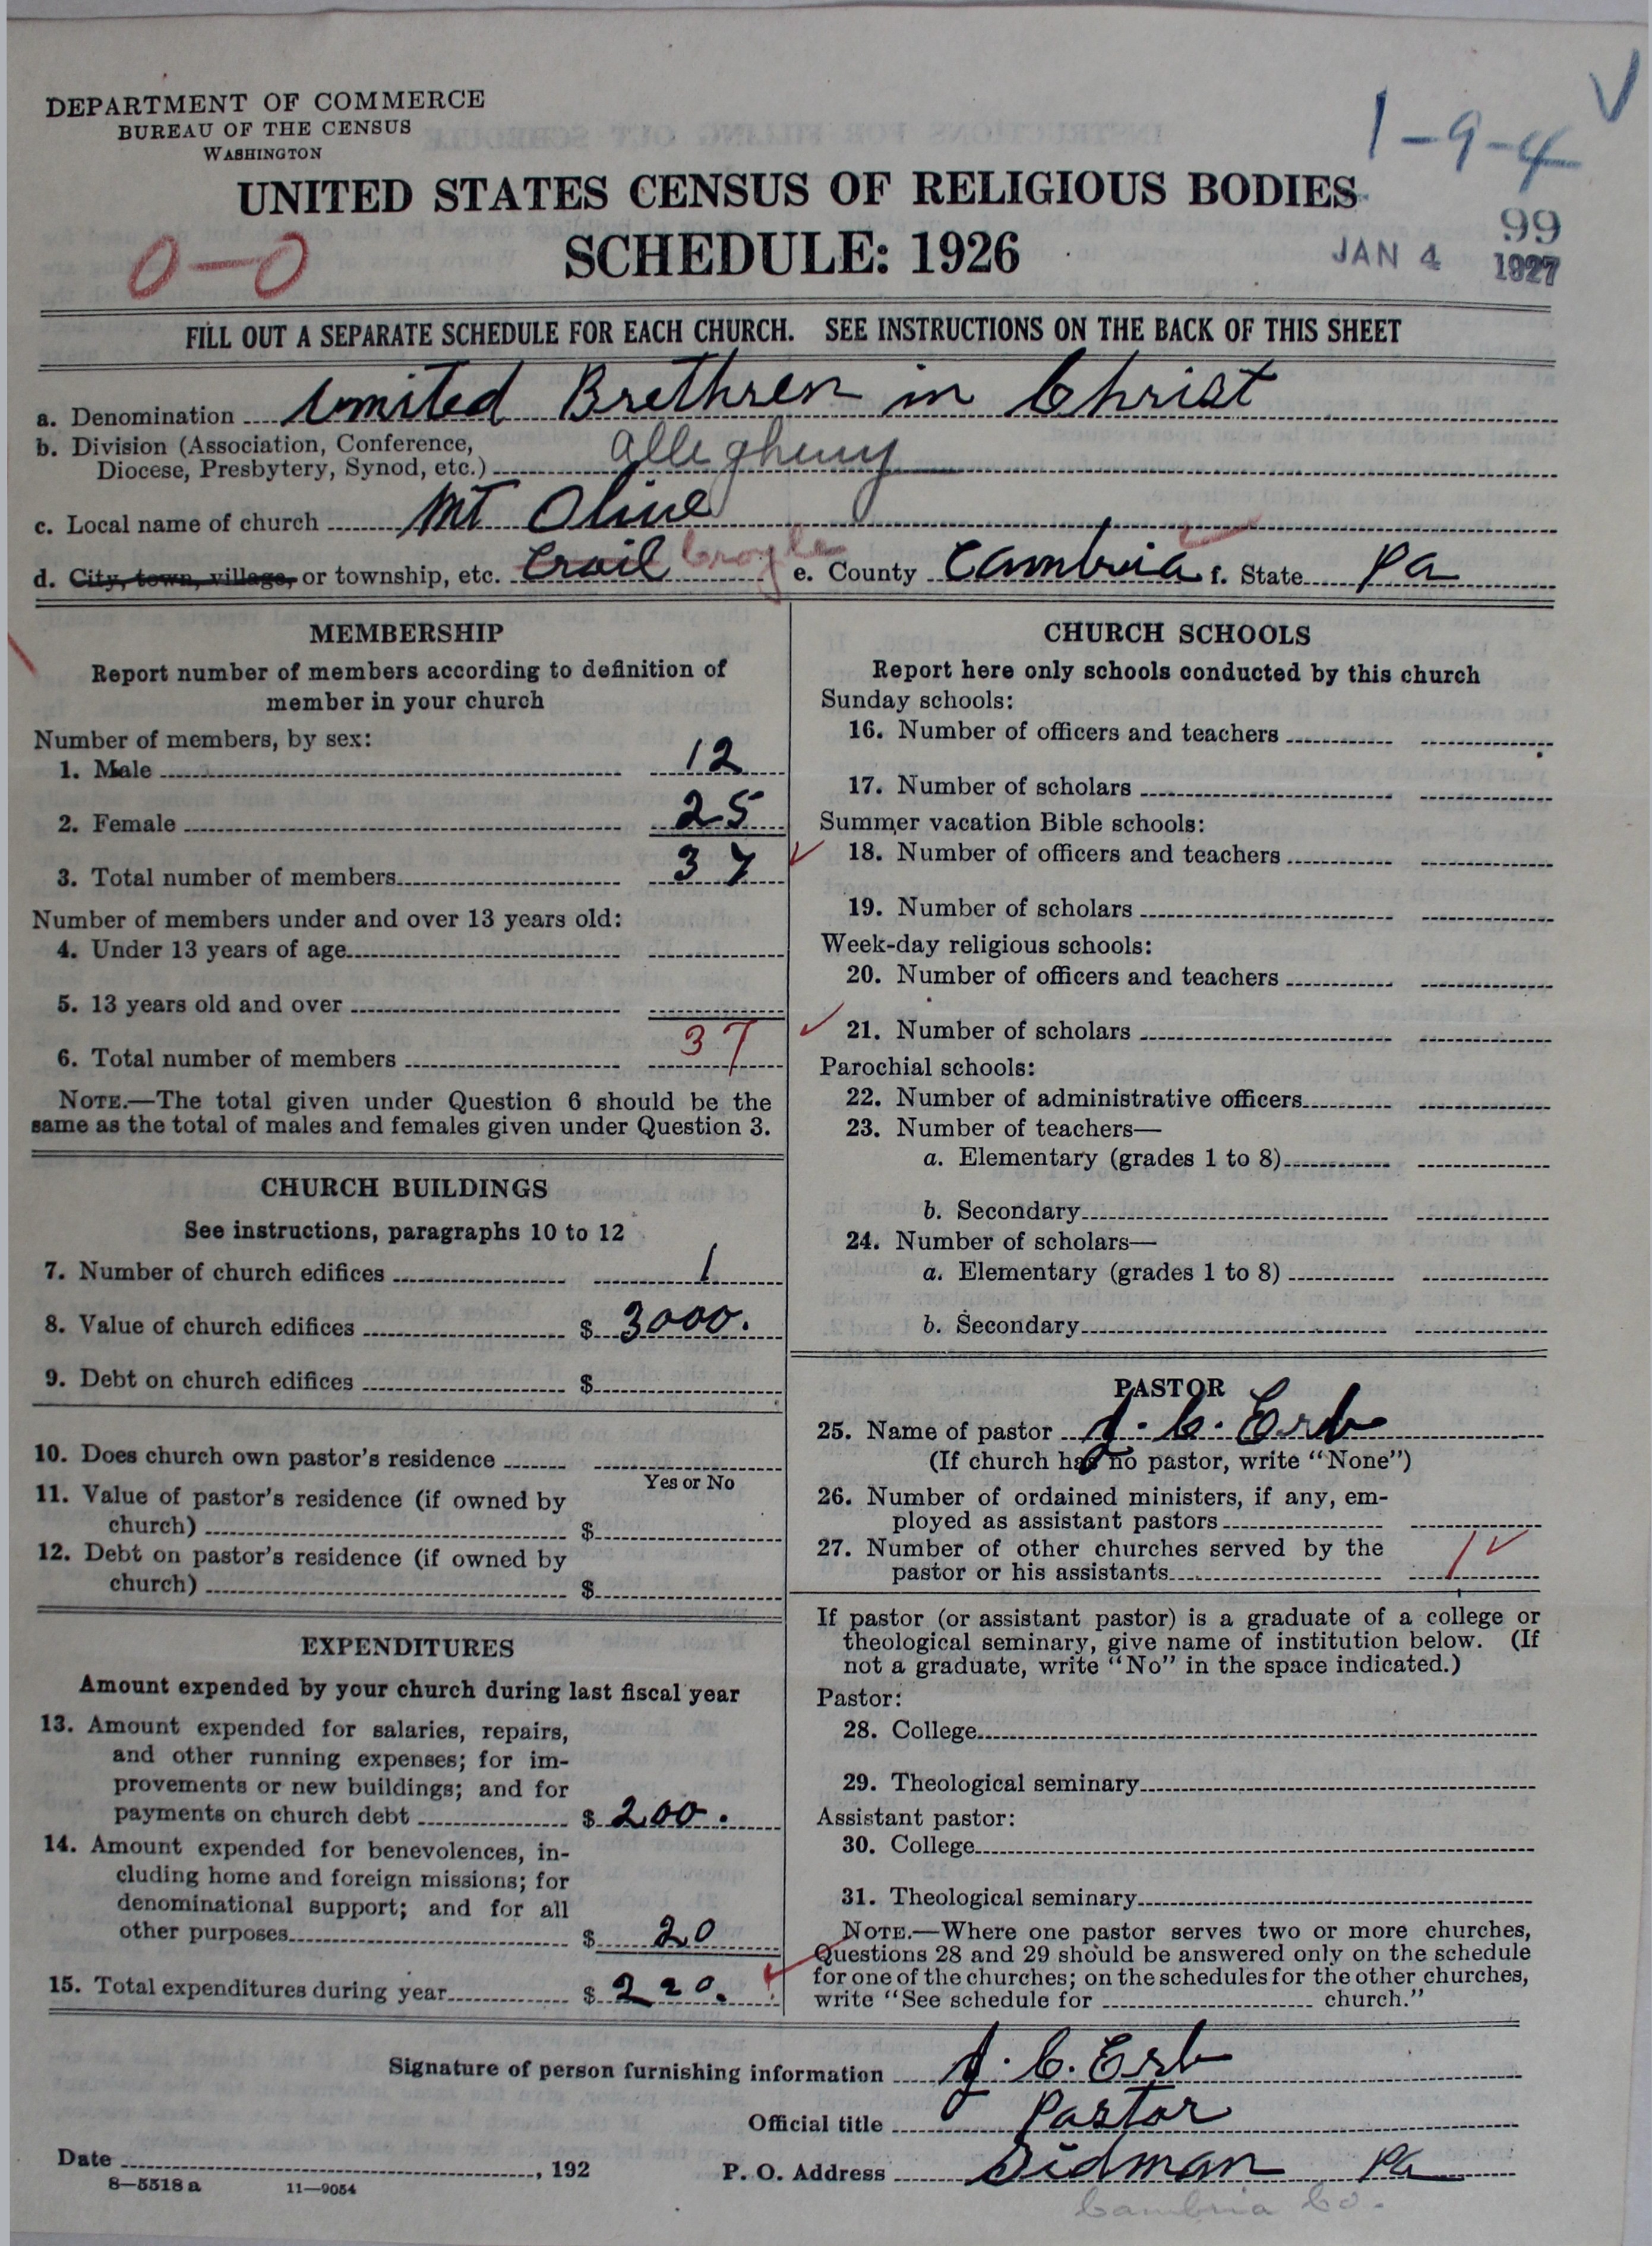 DEPARTMENT OF COMMERCE
BUREAU OF THE CENSUS
WASHINGTON
1-9-4
UNITED STATES CENSUS OF RELIGIOUS BODIES
SCHEDULE: 1926
0-0
99
JAN 4 1927
FILL OUT A SEPARATE SCHEDULE FOR EACH CHURCH. SEE INSTRUCTIONS ON THE BACK OF THIS SHEET
a. Denomination United Brethren in Christ
b. Division (Association, Conference,
Diocese, Presbytery, Synod, etc.) Allegheny
c. Local name of church Mt Olive
d. City, town, village, or township, etc. Croil Croyle e. County Cambria f. State Pa
MEMBERSHIP
Report number of members according to definition of
member in your church
Number of members, by sex:
1. Male 12
2. Female 25
3. Total number of members 37
Number of members under and over 13 years old:
4. Under 13 years of age
5. 13 years old and over
6. Total number of members 37
NOTE.—The total given under Question 6 should be the
same as the total of males and females given under Question 3.
CHURCH BUILDINGS
See instructions, paragraphs 10 to 12
7. Number of church edifices 1
8. Value of church edifices $ 3000.
9. Debt on church edifices $
10. Does church own pastor's residence
Yes or No
11. Value of pastor's residence (if owned by
church) $
12. Debt on pastor's residence (if owned by
church) $
EXPENDITURES
Amount expended by your church during last fiscal year
13. Amount expended for salaries, repairs,
and other running expenses; for im-
provements or new buildings; and for
payments on church debt $ 200.
14. Amount expended for benevolences, in-
cluding home and foreign missions; for
denominational support; and for all
other purposes $ 20
15. Total expenditures during year $ 220.
CHURCH SCHOOLS
Report here only schools conducted by this church
Sunday schools:
16. Number of officers and teachers
17. Number of scholars
Summer vacation Bible schools:
18. Number of officers and teachers
19. Number of scholars
Week-day religious schools:
20. Number of officers and teachers
21. Number of scholars
Parochial schools:
22. Number of administrative officers
23. Number of teachers—
a. Elementary (grades 1 to 8)
b. Secondary
24. Number of scholars—
a. Elementary (grades 1 to 8)
b. Secondary
PASTOR
25. Name of pastor J. C. Erb
(If church has no pastor, write "None")
26. Number of ordained ministers, if any, em-
ployed as assistant pastors
27. Number of other churches served by the
pastor or his assistants 1
If pastor (or assistant pastor) is a graduate of a college or
theological seminary, give name of institution below. (If
not a graduate, write "No" in the space indicated.)
Pastor:
28. College
29. Theological seminary
Assistant pastor:
30. College
31. Theological seminary
NOTE.—Where one pastor serves two or more churches,
Questions 28 and 29 should be answered only on the schedule
for one of the churches; on the schedules for the other churches,
write "See schedule for church."
Signature of person furnishing information J. C. Erb
Official title Pastor
Date , 192
P. O. Address Sidman Pa
Cambria Co.
8—5518 a 11—9054